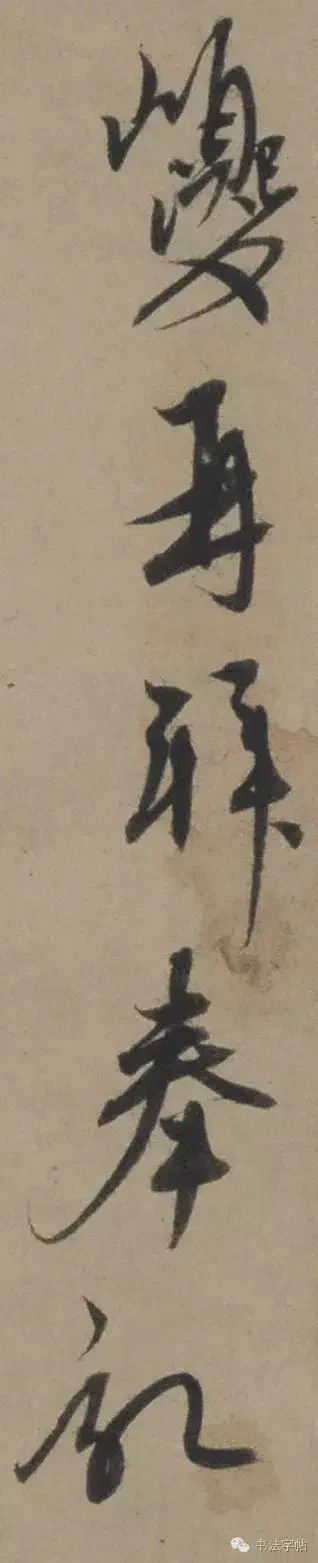 巎再拜奉記
书法字帖